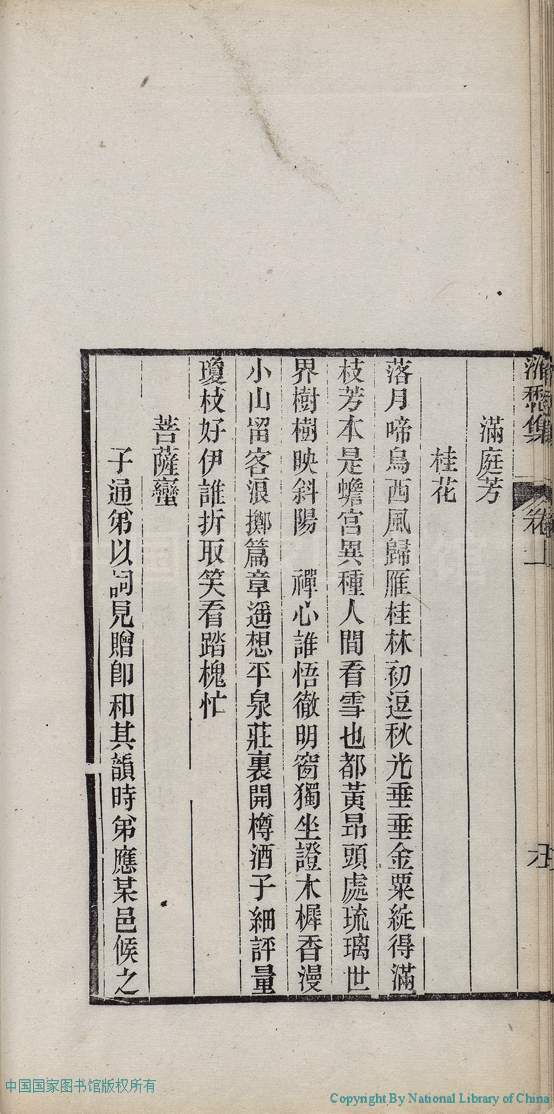 滿庭芳
桂花
落月啼烏西風歸雁桂林初逗秋光垂垂金粟綻得滿
枝芳本是蟾宮異種人間看雪也都黃昂頭處琉璃世
界樹樹映斜陽　禪心誰悟徹明窗獨坐證木樨香漫
小山留客浪擲篇章遥想平泉莊裏開樽酒子細評量
瓊枝好伊誰折取笑看踏槐忙
菩薩蠻
子通弟以詞見贈卽和其韻時弟應某邑候之
中国国家图书馆版权所有
Copyright By National Library of China